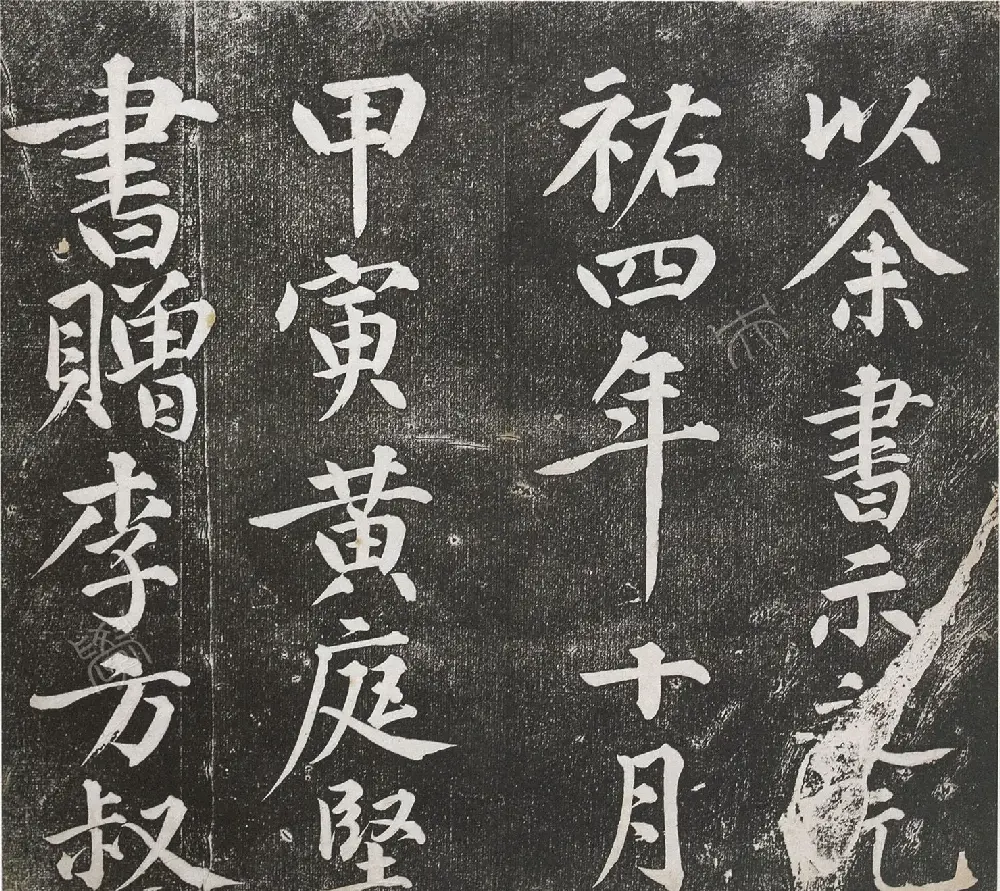 以余書示之元
祐四年十月
甲寅黄庭堅
書贈李方叔